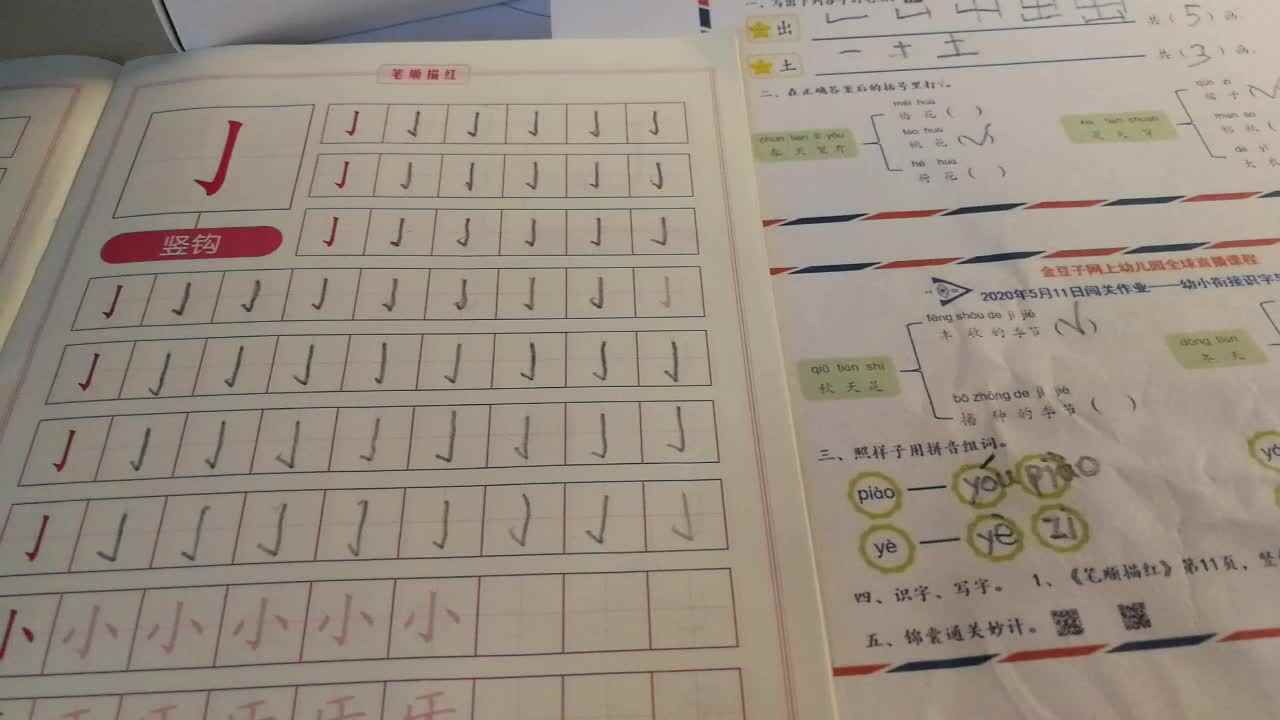 笔顺描红
竖钩
小 小 小 小 小 小
出 共(5)画.
土 一 十 土 共(3)画.
二、在正确答案后的括号里打√。
chūn tiān lǐ yǒu
春天里有
méi huā
梅花( )
táo huā
桃花(√)
hé huā
荷花( )
金豆子网上幼儿园全球直播课程
2020年5月11日闯关作业——幼小衔接识字
qiū tiān shì
秋天是
fēng shōu de jì jié
丰收的季节(√)
bō zhǒng de jì jié
播种的季节( )
dōng tiān
冬天
三、照样子用拼音组词。
piào — yóu piào
yè — yè zi
四、识字、写字。 1、《笔顺描红》第11页,竖
五、锦囊通关妙计。